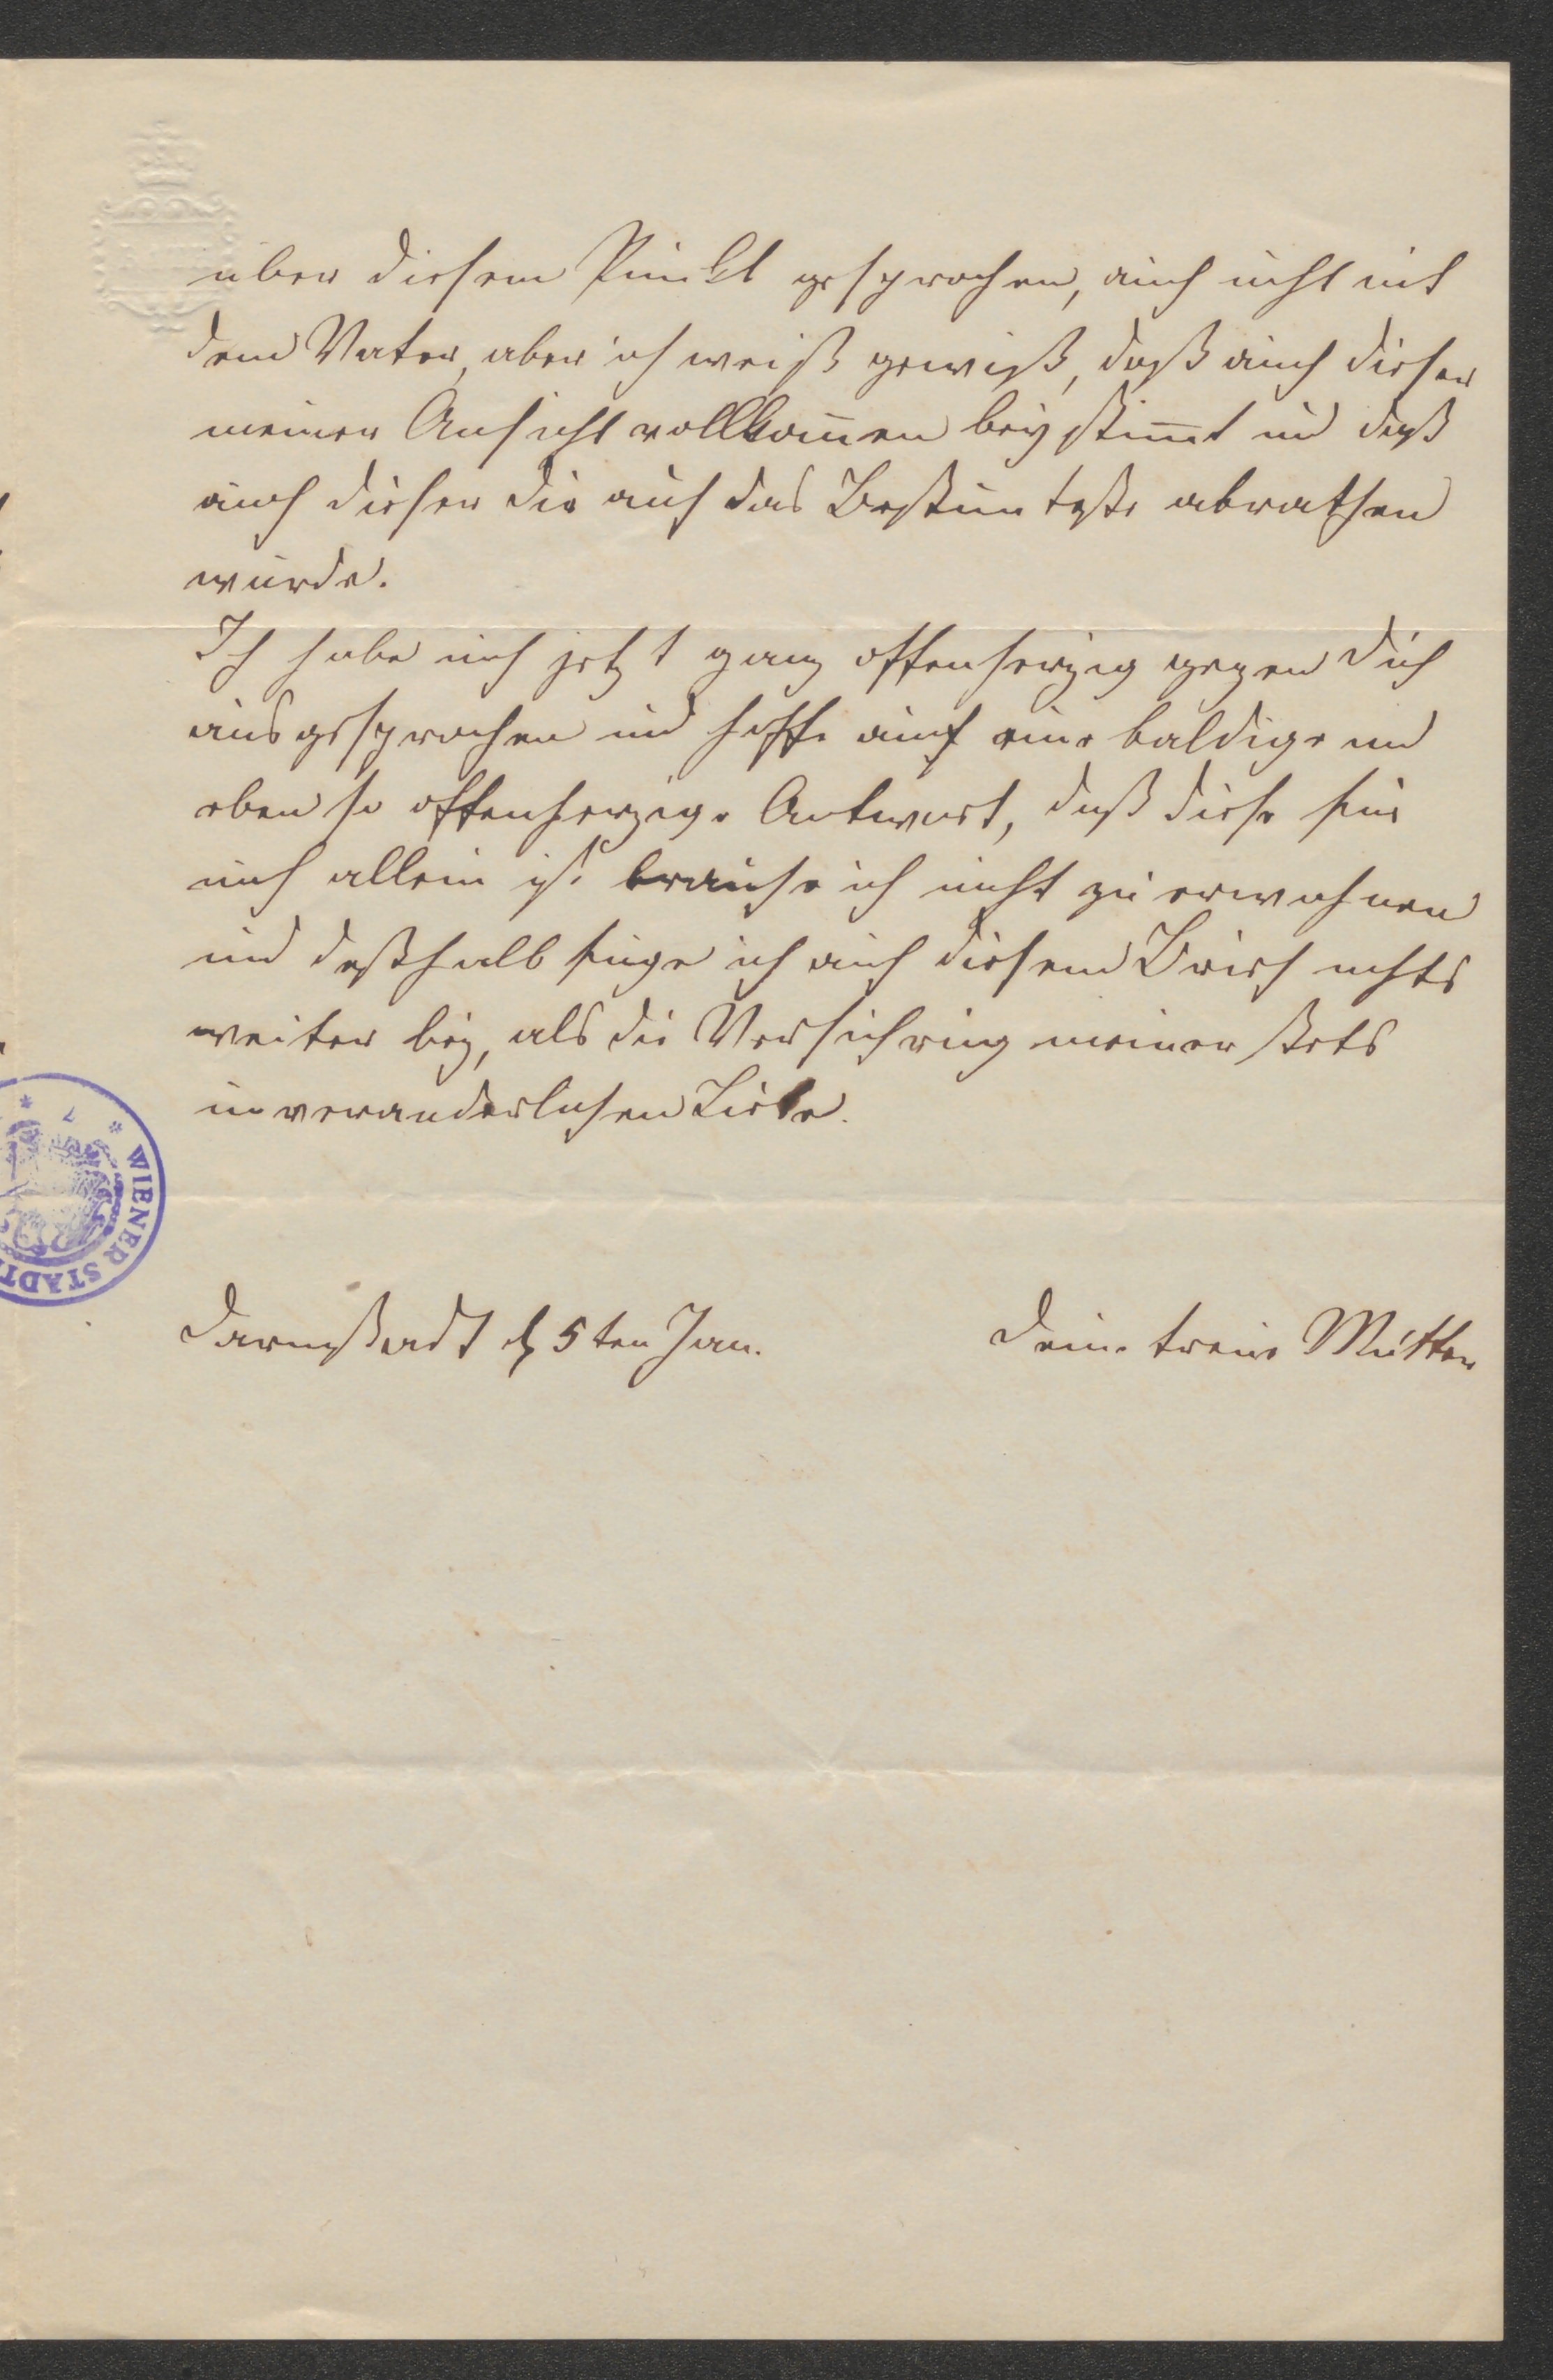 über diesem Punkt gesprochen, auch nicht mit
dem Vater, aber ich weiß gewiß, daß auch dieser
meiner Ansicht vollkom̄en beystim̄t und daß
auch dieser Dir auf das Bestimteste abrathen
würde.
Ich habe mich jetzt ganz offenherzig gegen Dich
ausgesprochen und hoffe auf eine baldige und
eben so offenherzige Antwort, daß diese für
mich allein ist brauche ich nicht zu erwähnen
und deßhalb füge ich auch diesem Brief nichts
weiter bey, als die Versichrung meiner stets
unveränderlichen Liebe.
Darmstadt d 5ten Jan.
Deine treue Mutter
* 7 * WIENER STADT